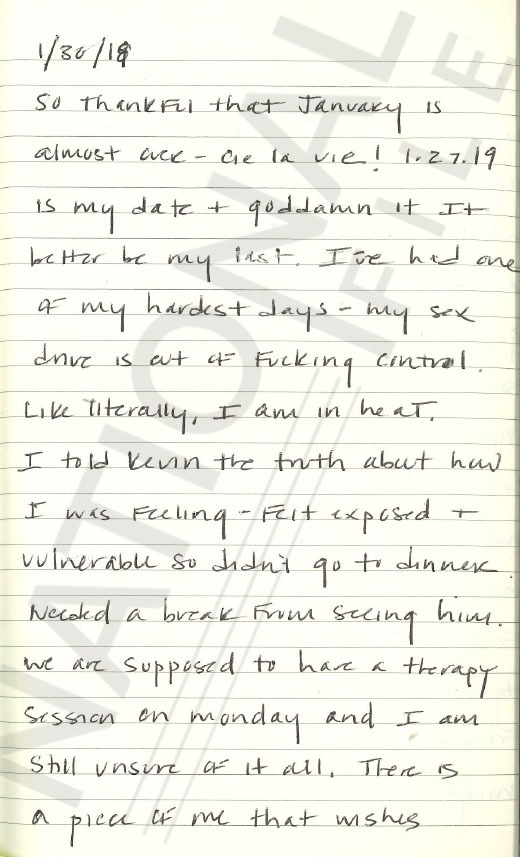 1/30/19
So thankful that January is
almost over - cie la vie! 1.27.19
is my date + goddamn it It
better be my last. I've had one
of my hardest days - my sex
drive is out of fucking control.
Like literally, I am in heat.
I told Kevin the truth about how
I was feeling - felt exposed +
vulnerable so didn't go to dinner.
Needed a break from seeing him.
we are supposed to have a therapy
session on monday and I am
still unsure of it all. There is
a piece of me that wishes
NATIONAL
FILE